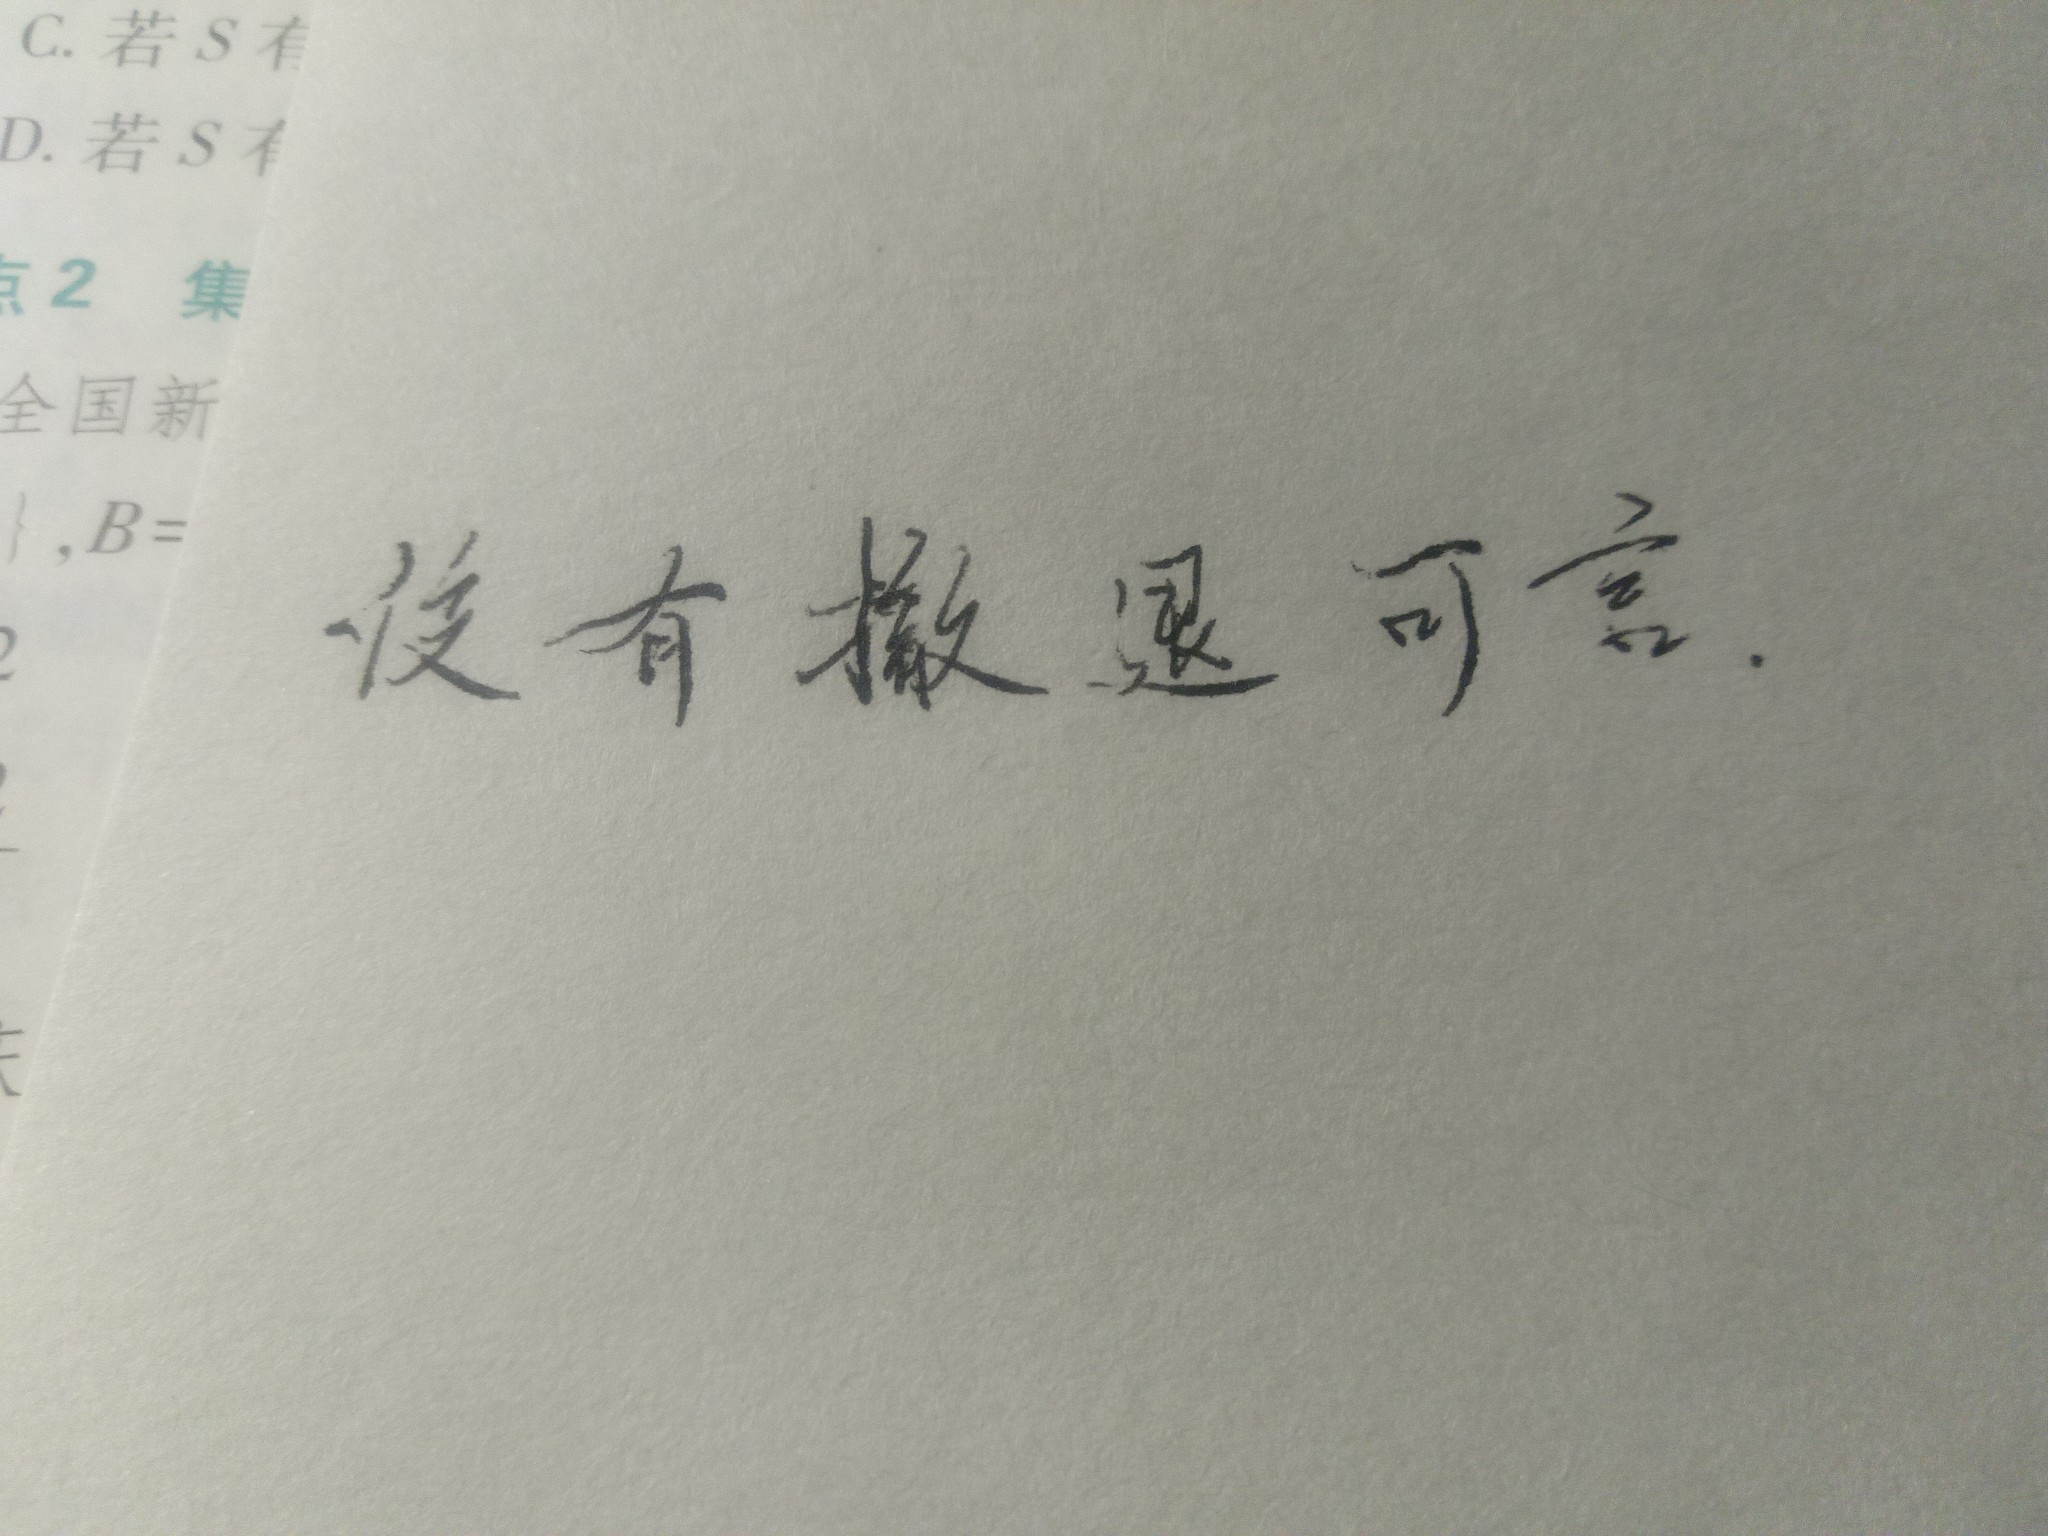 C. 若 S 有
D. 若 S 有
点 2 集
全国新
} , B =
2
没有撤退可言.